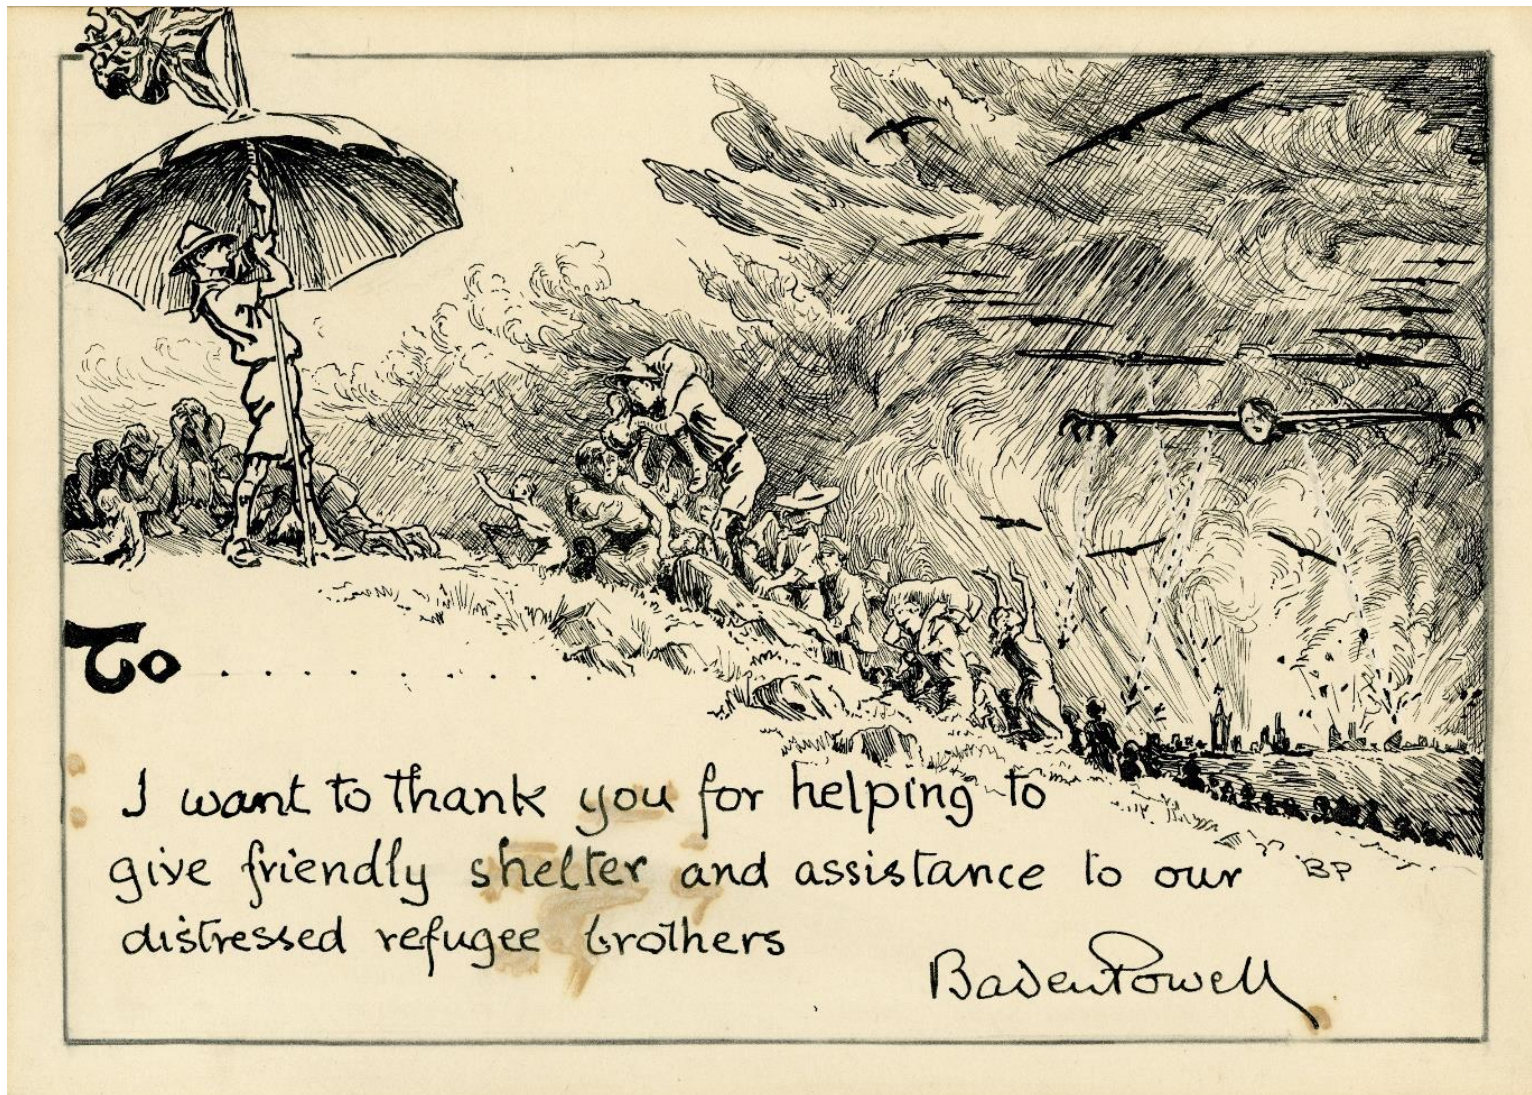 To . . . . . . . . . .
I want to thank you for helping to
give friendly shelter and assistance to our
distressed refugee brothers
BP
Baden Powell